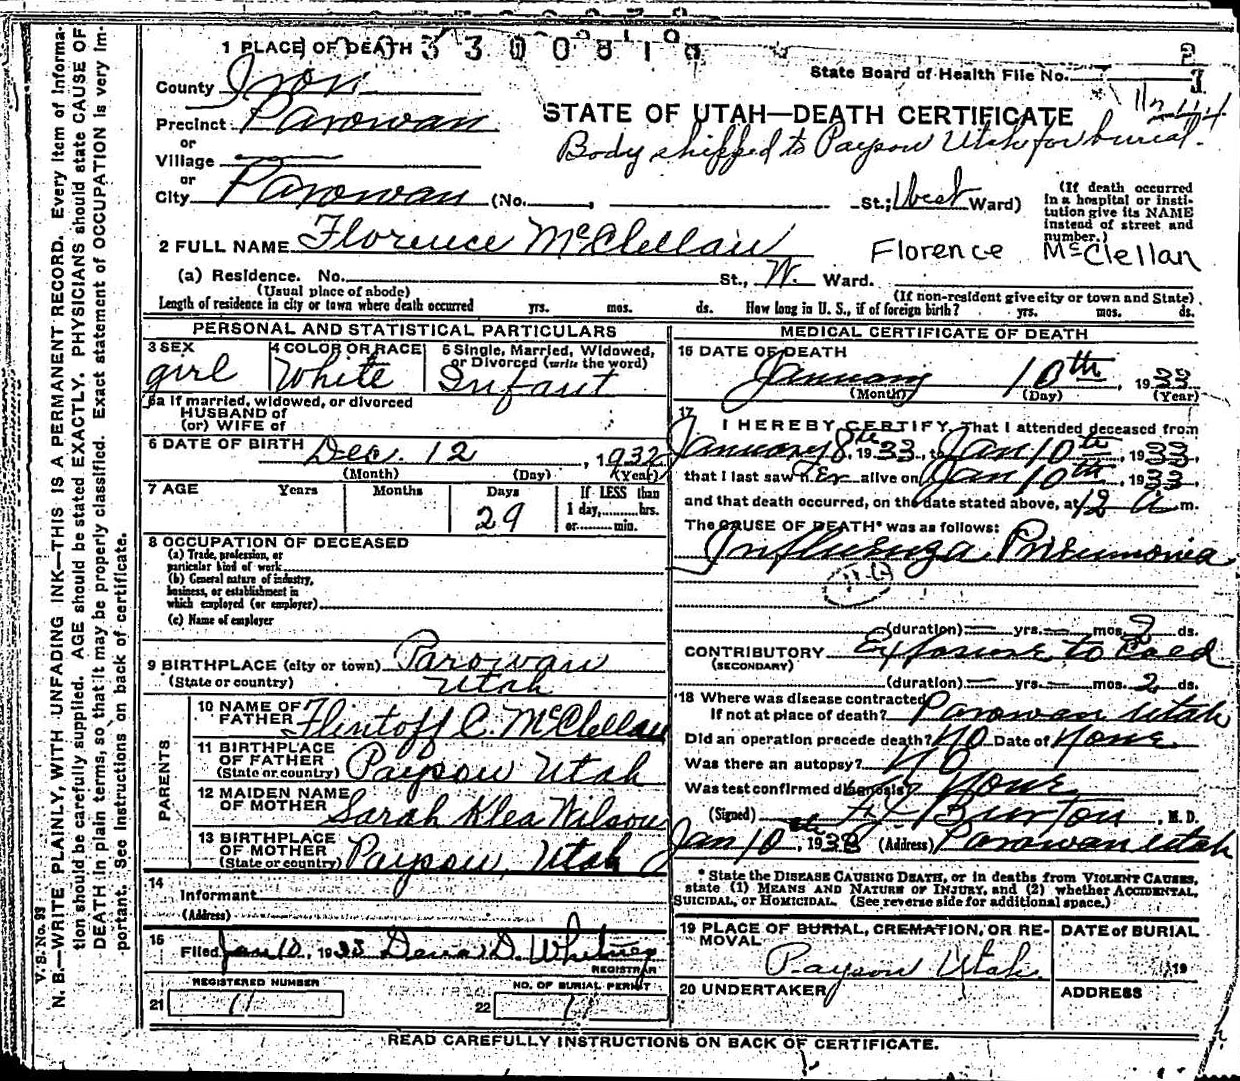 1 PLACE OF DEATH
State Board of Health File No.
County Iron
STATE OF UTAH—DEATH CERTIFICATE
Precinct Parowan
Body shipped to Payson Utah for burial.
or
Village
or
City Parowan (No. , St.; West Ward)
(If death occurred in a hospital or institution give its NAME instead of street and number.)
2 FULL NAME Florence McClellan
Florence McClellan
(a) Residence. No. St., W. Ward.
(Usual place of abode) (If non-resident give city or town and State)
Length of residence in city or town where death occurred yrs. mos. ds. How long in U. S., if of foreign birth? yrs. mos. ds.
PERSONAL AND STATISTICAL PARTICULARS
3 SEX girl
4 COLOR OR RACE White
5 Single, Married, Widowed, or Divorced (write the word) Infant
5a If married, widowed, or divorced
HUSBAND of
(or) WIFE of
6 DATE OF BIRTH Dec. 12, 1932
(Month) (Day) (Year)
7 AGE Years Months Days 29
If LESS than 1 day,........hrs. or........min.
8 OCCUPATION OF DECEASED
(a) Trade, profession, or particular kind of work
(b) General nature of industry, business, or establishment in which employed (or employer)
(c) Name of employer
9 BIRTHPLACE (city or town) Parowan
(State or country) Utah
PARENTS
10 NAME OF FATHER Flintoff C. McClellan
11 BIRTHPLACE OF FATHER (State or country) Payson Utah
12 MAIDEN NAME OF MOTHER Sarah Klea Wilson
13 BIRTHPLACE OF MOTHER (State or country) Payson, Utah
14 Informant
(Address)
15 Filed Jan 10, 1933 D. Whitney
REGISTRAR
REGISTERED NUMBER
21 11
NO. OF BURIAL PERMIT
22 11
MEDICAL CERTIFICATE OF DEATH
16 DATE OF DEATH
January 10th, 1933
(Month) (Day) (Year)
17 I HEREBY CERTIFY, That I attended deceased from
January 8th, 1933, to Jan 10th, 1933
that I last saw her alive on Jan 10th, 1933
and that death occurred, on the date stated above, at 12 a m.
The CAUSE OF DEATH* was as follows:
Influenza Pneumonia
(duration) — yrs. — mos. 2 ds.
CONTRIBUTORY Exposure to Cold
(SECONDARY)
(duration) — yrs. — mos. 2 ds.
18 Where was disease contracted
If not at place of death? Parowan Utah
Did an operation precede death? No Date of None
Was there an autopsy? No
Was test confirmed diagnosis? None
(Signed) Burton, M. D.
Jan 10th, 1933 (Address) Parowan Utah
* State the DISEASE CAUSING DEATH, or in deaths from VIOLENT CAUSES, state (1) MEANS AND NATURE OF INJURY, and (2) whether ACCIDENTAL, SUICIDAL, or HOMICIDAL. (See reverse side for additional space.)
19 PLACE OF BURIAL, CREMATION, OR REMOVAL
Payson Utah
DATE of BURIAL
19
20 UNDERTAKER
ADDRESS
READ CAREFULLY INSTRUCTIONS ON BACK OF CERTIFICATE.
V. S. No. 93
N. B.—WRITE PLAINLY, WITH UNFADING INK—THIS IS A PERMANENT RECORD. Every item of information should be carefully supplied. AGE should be stated EXACTLY. PHYSICIANS should state CAUSE OF DEATH in plain terms, so that it may be properly classified. Exact statement of OCCUPATION is very important. See instructions on back of certificate.